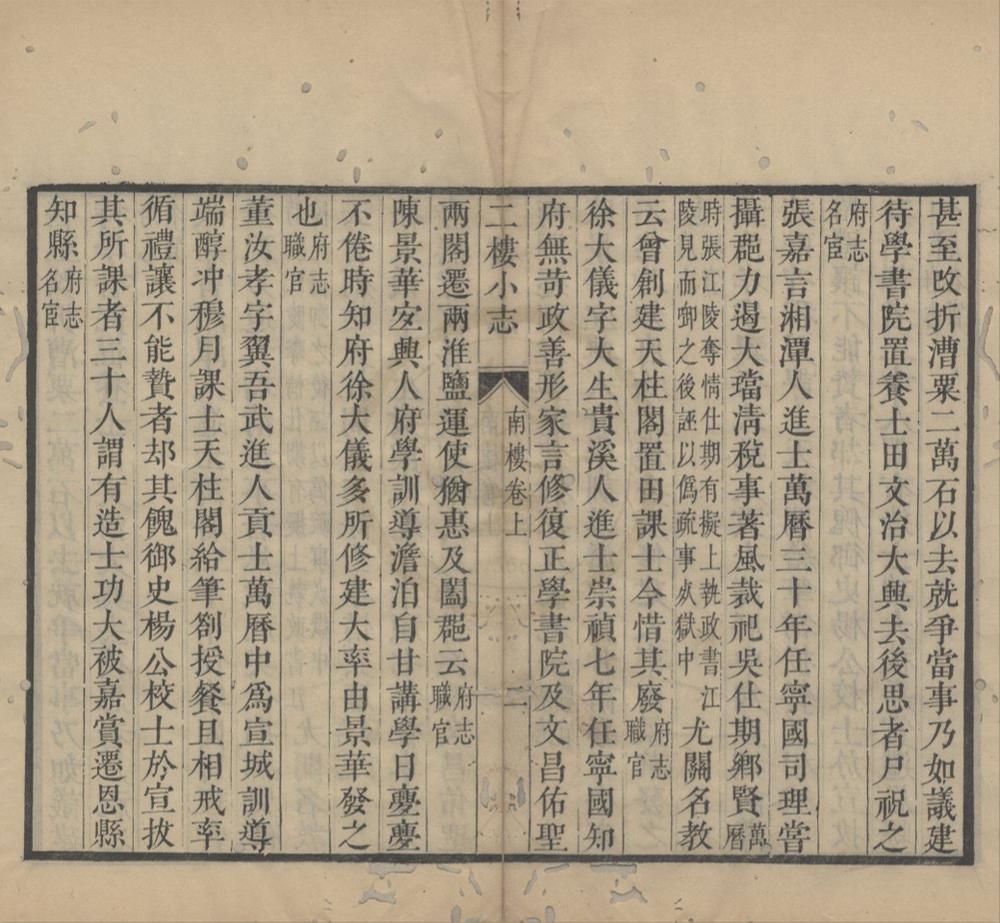 甚至改折漕粟二萬石以去就爭當事乃如議建
待學書院置養士田文治大興去後思者尸祝之
府志名宦
張嘉言湘潭人進士萬曆三十年任寧國司理嘗
攝郡力遏大璫淸稅事著風裁祀吳仕期鄉賢萬曆
時張江陵奪情仕期有擬上執政書江陵見而啣之後誣以僞疏事㱥獄中尤關名教
云曾創建天柱閣置田課士今惜其廢府志職官
徐大儀字大生貴溪人進士崇禎七年任寧國知
府無苛政善形家言修復正學書院及文昌佑聖
二樓小志 南樓卷上 二
兩閣遷兩淮鹽運使猶惠及闔郡云府志職官
陳景華㝎興人府學訓導澹泊自甘講學日亹亹
不倦時知府徐大儀多所修建大率由景華發之
也府志職官
董汝孝字翼吾武進人貢士萬曆中爲宣城訓導
端醇冲穆月課士天柱閣給筆劄授餐且相戒率
循禮讓不能贄者却其餽御史楊公校士於宣拔
其所課者三十人謂有造士功大被嘉賞遷恩縣
知縣府志名宦